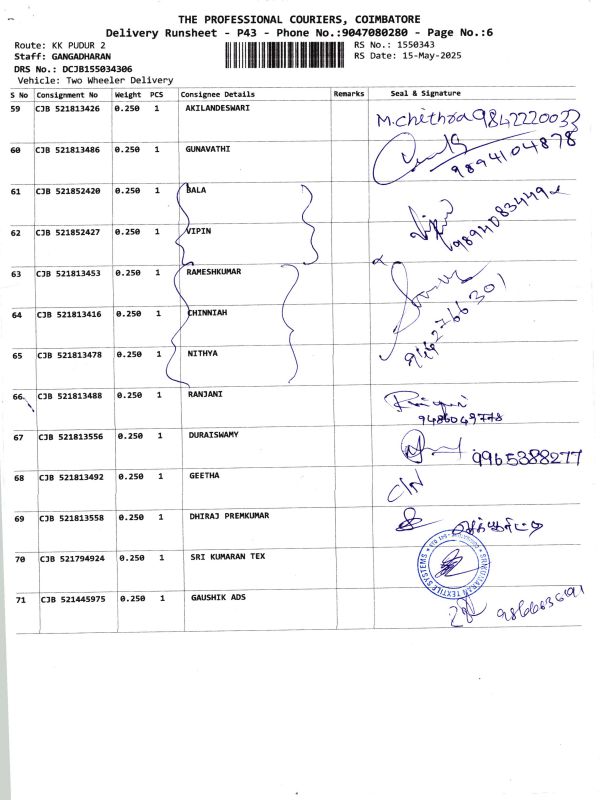 THE PROFESSIONAL COURIERS, COIMBATORE
Delivery Runsheet - P43 - Phone No.:9047080280 - Page No.:6
Route: KK PUDUR 2 RS No.: 1550343
Staff: GANGADHARAN RS Date: 15-May-2025
DRS No.: DCJB155034306
Vehicle: Two Wheeler Delivery
S No Consignment No Weight PCS Consignee Details Remarks Seal & Signature
59 CJB 521813426 0.250 1 AKILANDESWARI M.Chithra 9842220033
60 CJB 521813486 0.250 1 GUNAVATHI 9894104878
61 CJB 521852420 0.250 1 BALA
62 CJB 521852427 0.250 1 VIPIN Vipin 9894083449
63 CJB 521813453 0.250 1 RAMESHKUMAR
64 CJB 521813416 0.250 1 CHINNIAH
65 CJB 521813478 0.250 1 NITHYA 9442766301
66 CJB 521813488 0.250 1 RANJANI
9486049778
67 CJB 521813556 0.250 1 DURAISWAMY 9965388277
68 CJB 521813492 0.250 1 GEETHA C/N
69 CJB 521813558 0.250 1 DHIRAJ PREMKUMAR
70 CJB 521794924 0.250 1 SRI KUMARAN TEX
71 CJB 521445975 0.250 1 GAUSHIK ADS